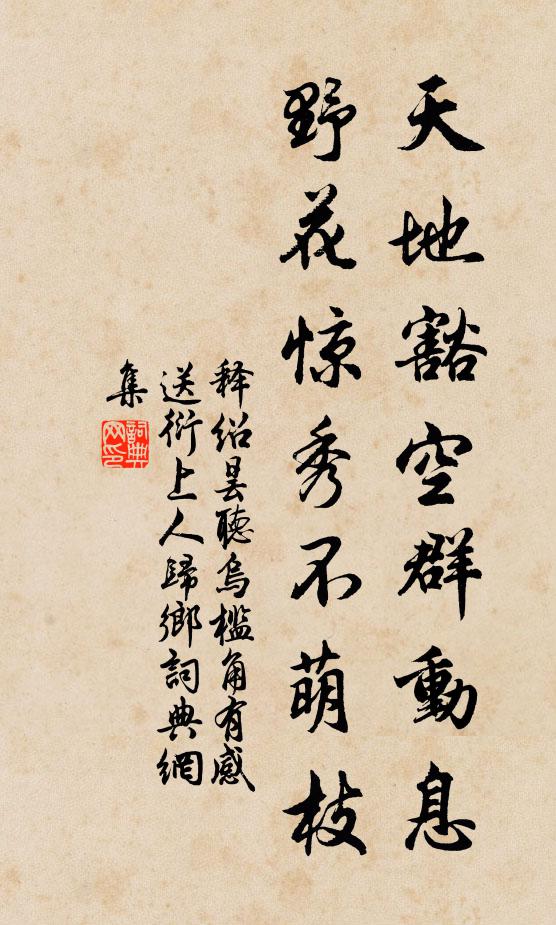 天地豁空群動息
野花惊秀不萌枝
释绍昙聽烏檻角有感
送衍上人歸鄉詞典網
集
詞典网印